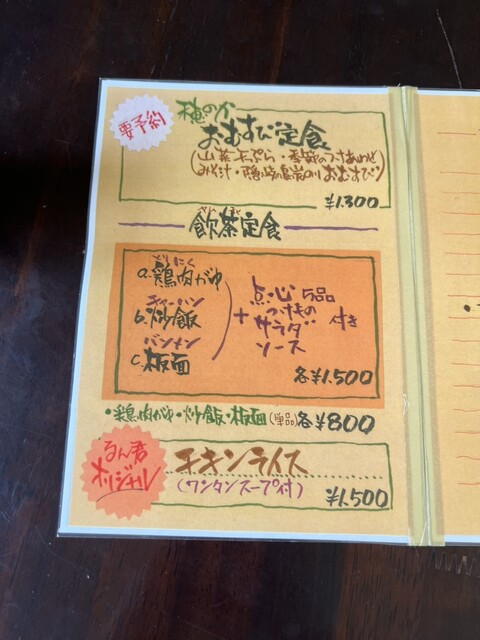 要予約
穂のか
おむすび定食
(山菜天ぷら・季節のつけあわせ
みそ汁・隠岐島岩のりおむすび)
¥1.300
飲茶定食
とりにく
a.鶏肉がゆ
チャーハン
b.炒飯
バンメン
c.板面
点心5品
+つけもの
サラダ 付き
ソース
各¥1.500
・鶏肉がゆ・炒飯・板面(単品)各¥800
るん君
オリジナル
チキンライス
(ワンタンスープ付)
¥1.500